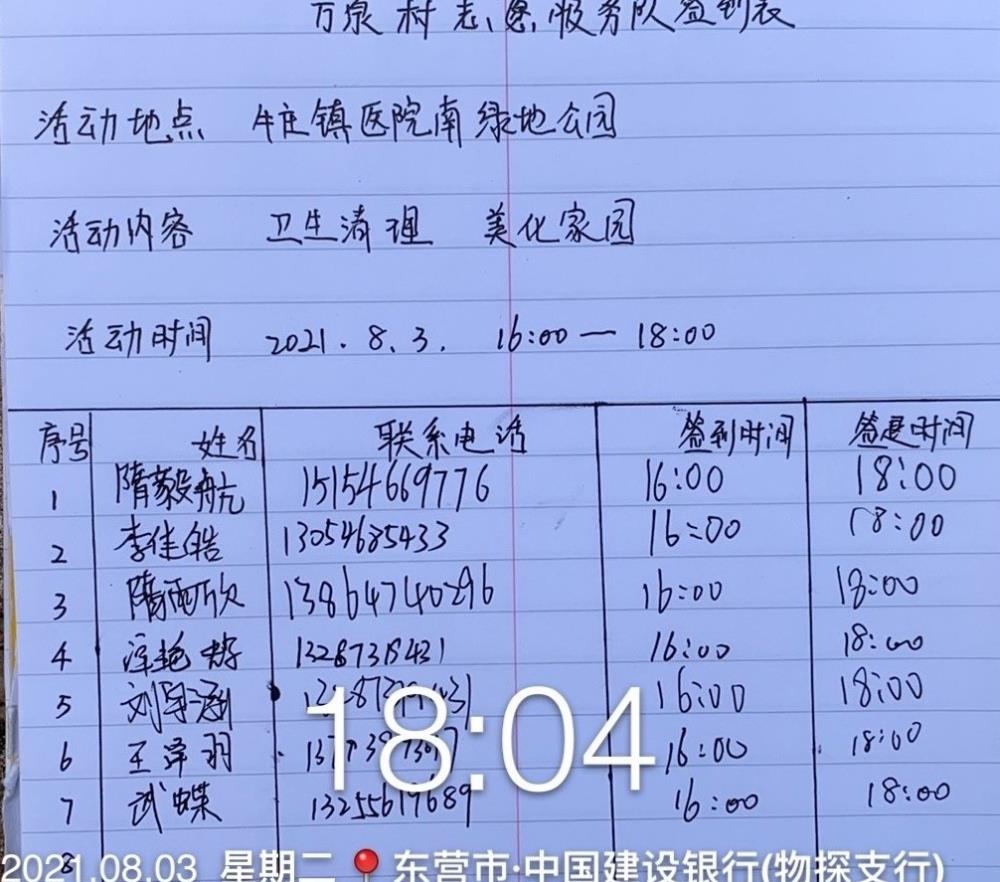 万泉村志愿服务队签到表
活动地点 牛庄镇医院南绿地公园
活动内容 卫生清理 美化家园
活动时间 2021.8.3. 16:00—18:00
序号 姓名 联系电话 签到时间 签退时间
1 隋毅航 15154669776 16:00 18:00
2 李佳皓 13054685433 16:00 18:00
3 隋雨欣 13864740296 16:00 18:00
4 16:00 18:00
5 刘 16:00 18:00
6 王泽羽 16:00 18:00
7 武蝶 13255617689 16:00 18:00
8
18:04
2021.08.03 星期二 东营市·中国建设银行(物探支行)